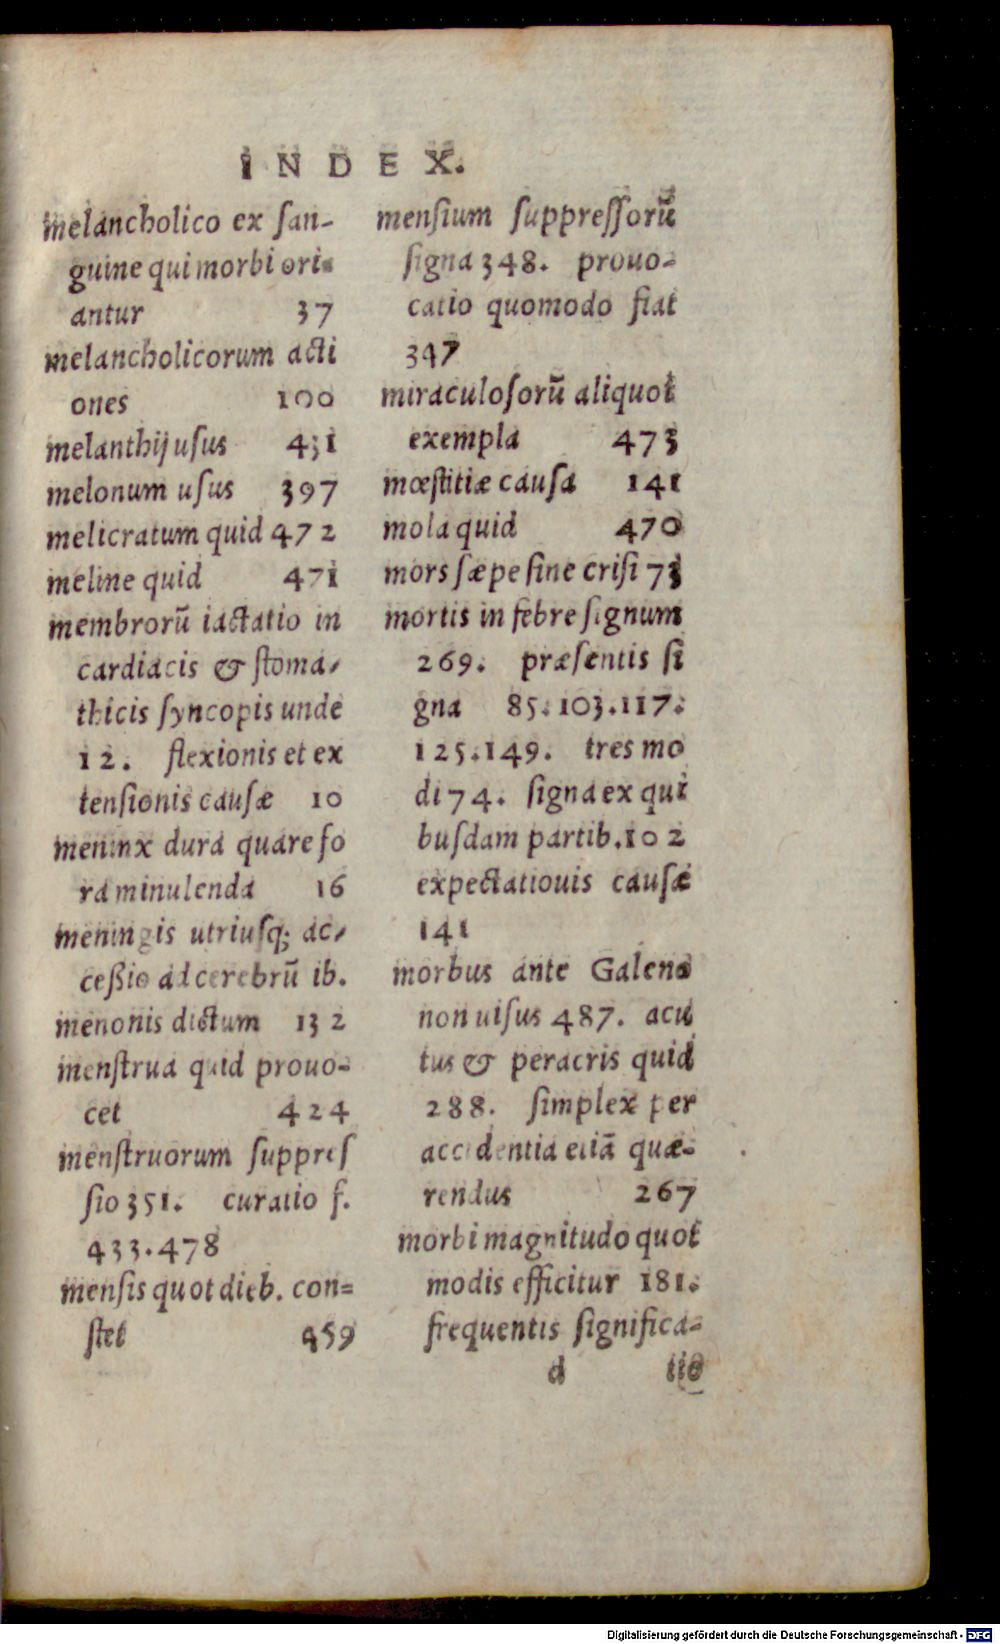 INDEX.
melancholico ex ſan-
guine qui morbi ori-
antur 37
melancholicorum acti
ones 100
melanthij uſus 431
melonum uſus 397
melicratum quid 472
meline quid 471
membrorũ iactatio in
cardiacis & ſtoma-
thicis ſyncopis unde
12. flexionis et ex
tenſionis cauſæ 10
meninx dura quare fo
raminulenda 16
meningis utriuſq; ac-
ceßio ad cerebrũ ib.
menonis dictum 132
menſtrua quid prouo-
cet 424
menſtruorum ſuppreſ
ſio 351. curatio f.
433.478
menſis quot dieb. con-
ſtet 459
menſium ſuppreſſorũ
ſigna 348. prouo-
catio quomodo fiat
347
miraculoſorũ aliquot
exempla 473
mœſtitiæ cauſa 141
mola quid 470
mors ſæpe ſine criſi 73
mortis in febre ſignum
269. præſentis ſi
gna 85.103.117.
125.149. tres mo
di 74. ſigna ex qui
buſdam partib. 102
expectatiouis cauſæ
141
morbus ante Galeno
non uiſus 487. acu
tus & peracris quid
288. ſimplex per
accidentia etiã quæ-
rendus 267
morbi magnitudo quot
modis efficitur 181.
frequentis ſignifica-
d tio
Digitalisierung gefördert durch die Deutsche Forschungsgemeinschaft - DFG